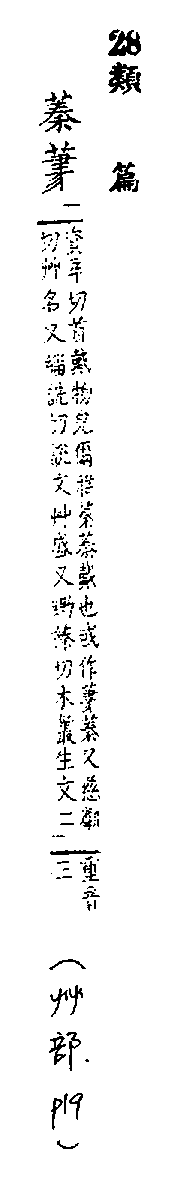 28類篇
蓁葏
二
資辛切首戴物皃爾雅蓁蓁戴也或作葏蓁又慈鄰
切艸名又緇詵切說文艸盛又鋤臻切木叢生文二
重音
三
(艸部. p19)